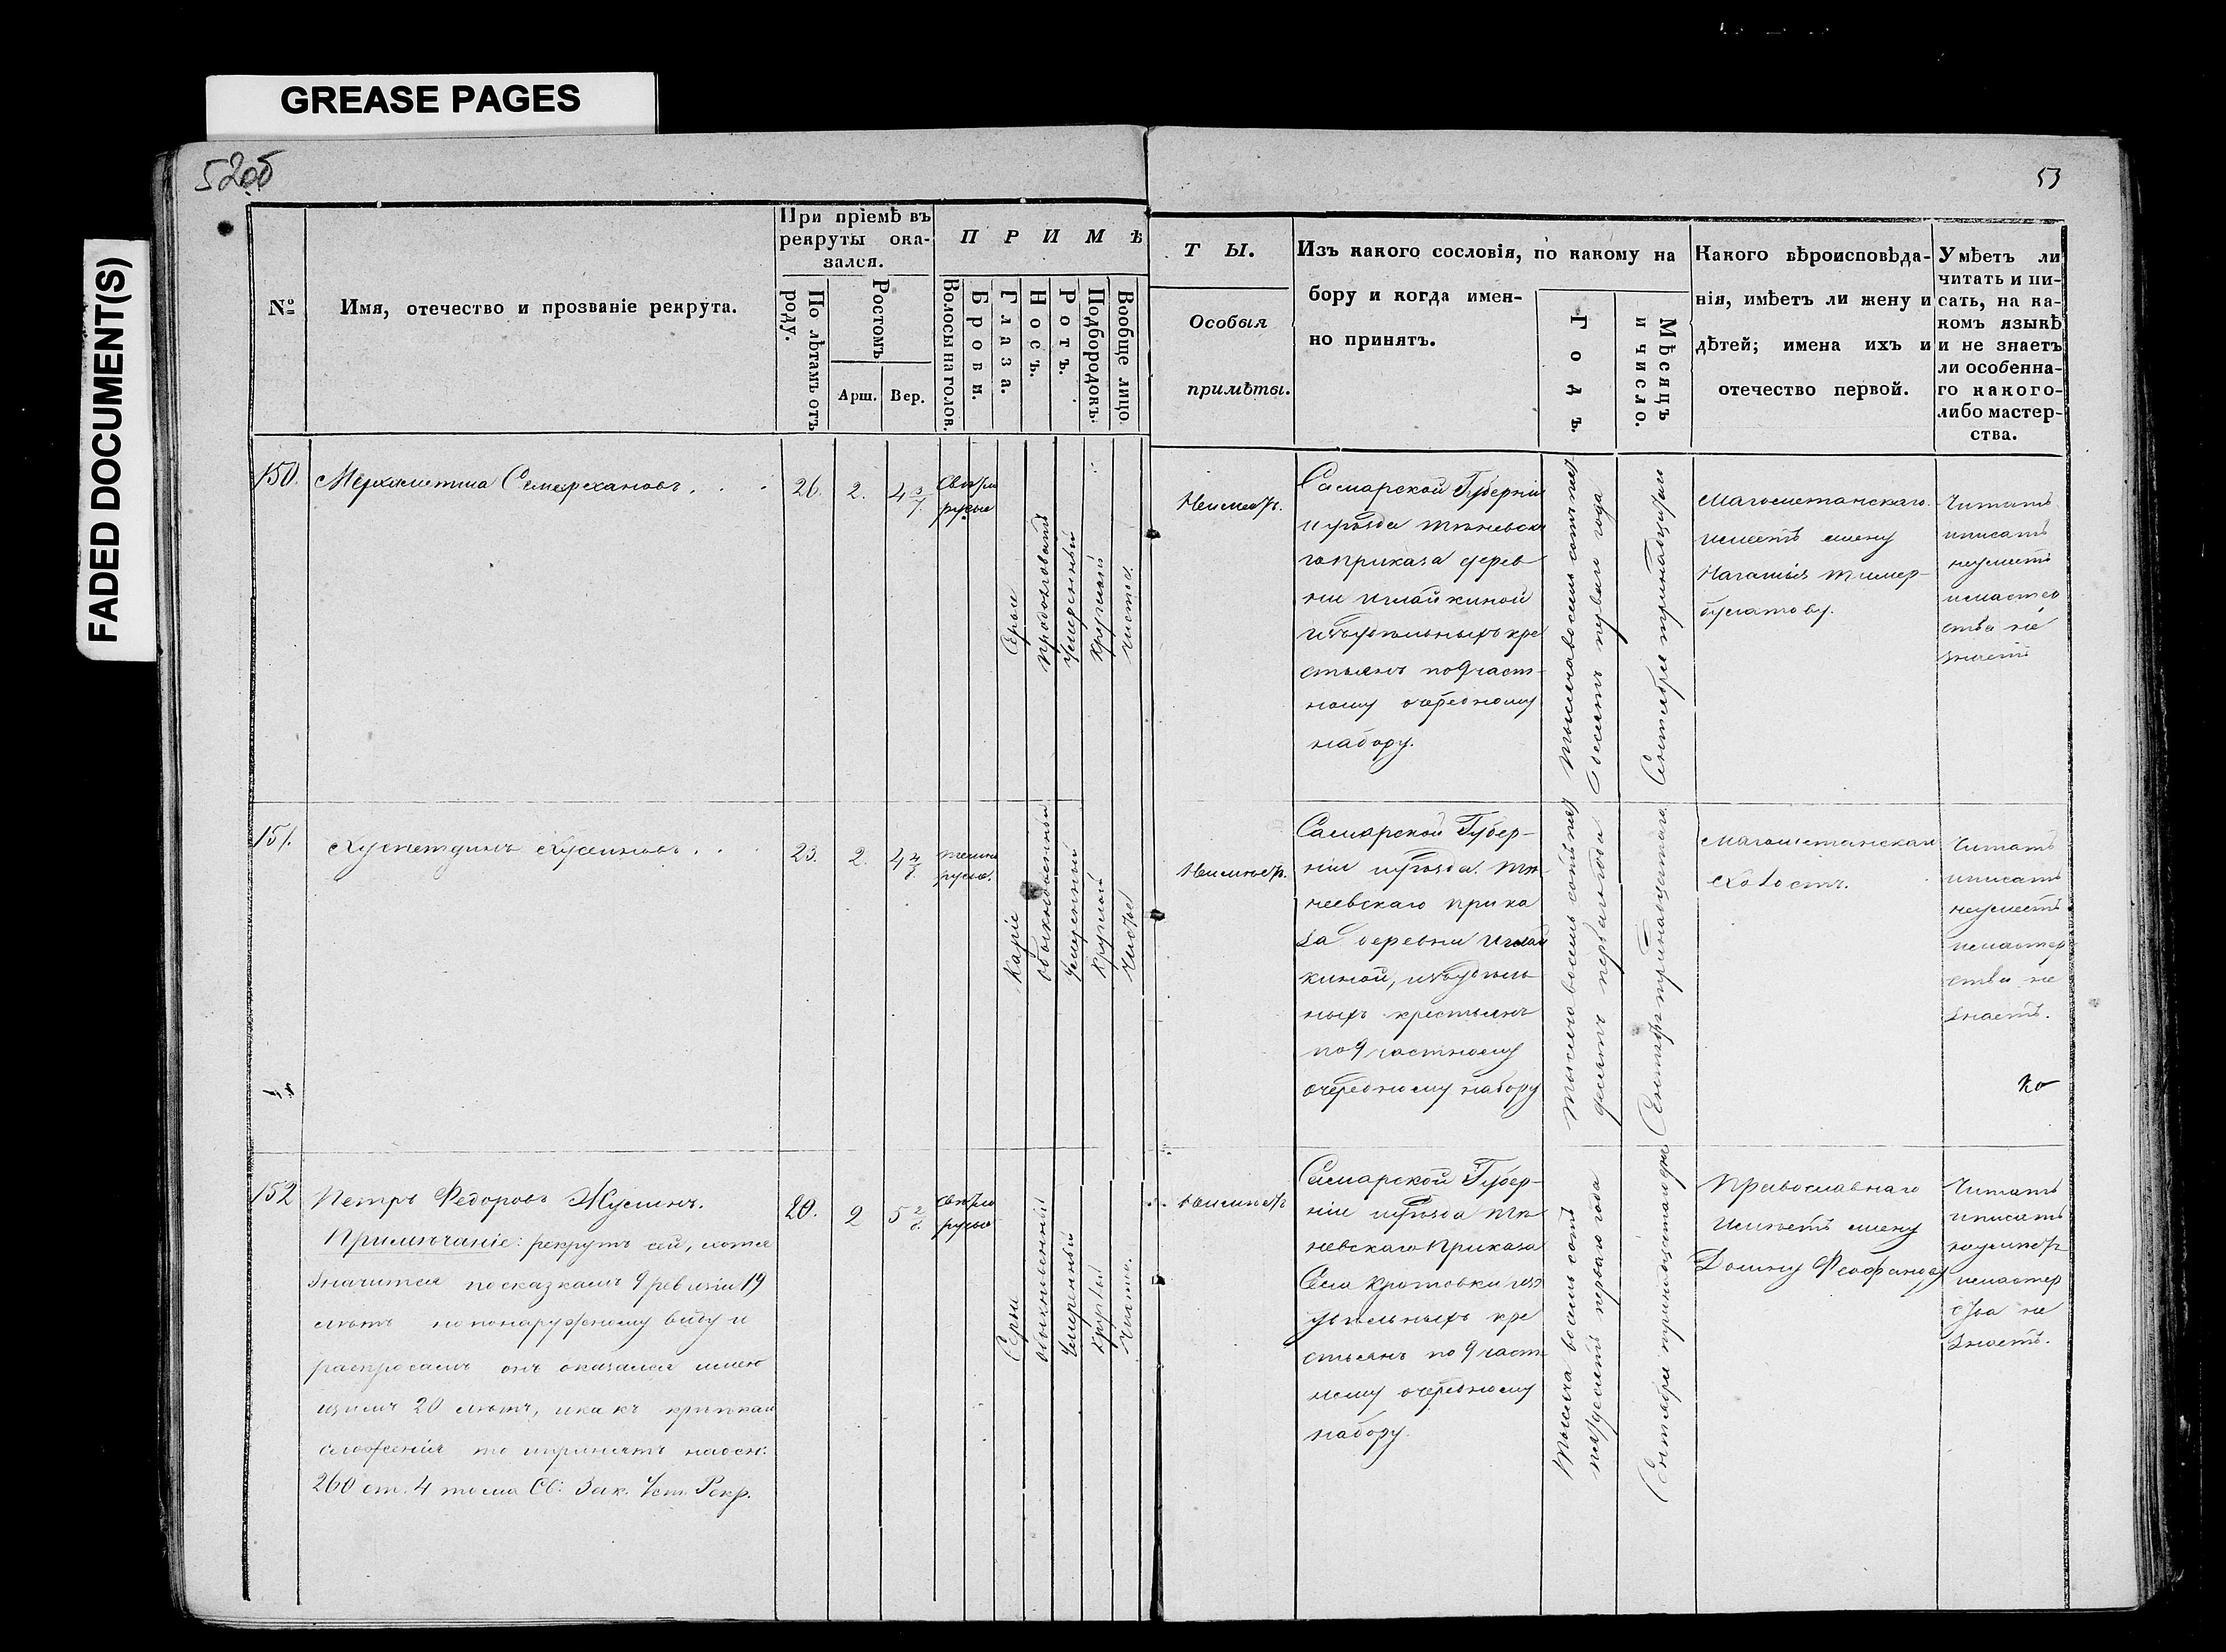 GREASE PAGES
FADED DOCUMENT(S)
52об
53
№
Имя, отечество и прозваніе рекрута.
При пріемѣ въ
рекруты ока-
зался.
По лѣтамъ отъ
роду.
Ростомъ
Арш.
Вер.
ПРИМѢ
Волосы на голов.
Брови.
Глаза.
Носъ.
Ротъ.
Подбородокъ.
Вообще лицо.
ТЫ.
Особыя
примѣты.
Изъ какого сословія, по какому на
бору и когда имен-
но принятъ.
Годъ.
Мѣсяцъ
и число.
Какого вѣроисповѣда-
нія, имѣетъ ли жену и
дѣтей; имена ихъ и
отечество первой.
Умѣетъ ли
читать и пи-
сать, на ка-
комъ языкѣ
и не знаетъ
ли особенна-
го какого-
либо мастер-
ства.
150.
Семерхановъ.
26.
2.
4 3/7.
Свѣтло
русые
Серые
продолговатъ
Умеренный
Круглый
чистое.
Неимеетъ.
Самарской Губерніи
и уѣзда
гоприказа дерев
ни
изъудѣльныхъ кре
стьянъ по9част-
ному очередному
набору.
Тысяча восемь сотъ пять
десятъ первый года
Сентября тринадцатаго
Магометанскаго
имеетъ жену
Читать
иписать
неумеетъ
имастер
ства не
знаетъ
151.
Хусновъ
23.
2.
4 4/7.
темно
русые.
Каріе
обыкновенный
Умеренный
круглый
чистое
Неимѣетъ.
Самарской Губер-
ніи иуѣзда.
неевскаго прика
за деревни
киной, изъудѣль
ныхъ крестьянъ
по9 частному
очередному набору
Тысяча восемь сотъ пять
десятъ перваго года
Сентября тринадцатаго
Магометанскаго
Холостъ.
Читать
иписать
неумеетъ
имастер
ства не
знаетъ.
152
Петръ Федоровъ Жусинъ.
Примѣчаніе: рекрутъ сей, хотя
значится посказкамъ 9 ревизіи 19
лѣтъ но понаружному виду и
распросамъ онъ оказался имею
щимъ 20 лѣтъ, икакъ крѣпкаго
сложенія то ипринятъ наосн:
260 ст. 4 тома Св: Зак. Уст. Рекр.
20.
2
5 2/8.
свѣтло
русые
Серые
обыкновенный
Умеренный
круглый
чистое.
неимѣетъ
Самарской Губер-
ніи иуѣзда
невскаго Приказа
Села Кротовки изъ
удѣльныхъ кре
стьянъ по 9 част
ному очередному
набору.
Тысяча восемь сотъ
пятдесятъ перваго года
Сентября тринадцатаго дня
Православнаго
имѣетъ жену
Домну Феофанову
Читать
иписать
неумѣетъ
имастер
ства не
знаетъ.